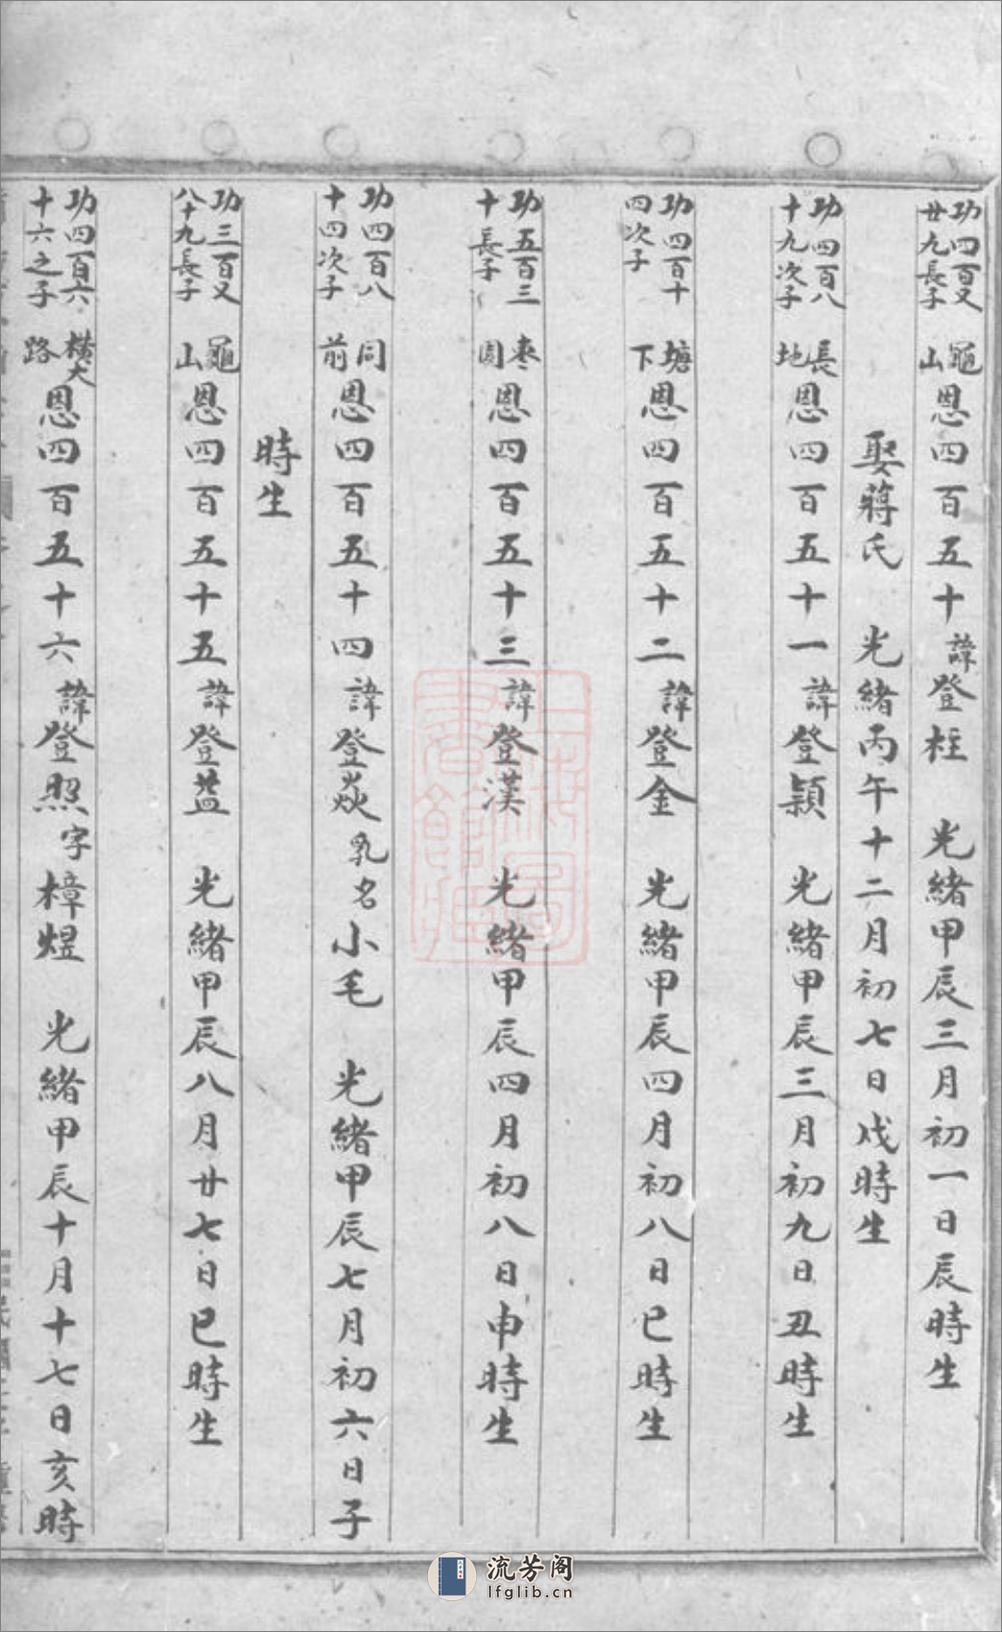 功四百又廿九長子 龜山 恩四百五十 諱登柱 光緒甲辰三月初一日辰時生
娶蔣氏 光緒丙午十二月初七日戌時生
功四百八十九次子 長地 恩四百五十一 諱登穎 光緒甲辰三月初九日丑時生
功四百十四次子 塘下 恩四百五十二 諱登金 光緒甲辰四月初八日巳時生
功五百三十長子 棗園 恩四百五十三 諱登漢 光緒甲辰四月初八日申時生
功四百八十四次子 同前 恩四百五十四 諱登焱 乳名小毛 光緒甲辰七月初六日子
時生
功三百又八十九長子 龜山 恩四百五十五 諱登 光緒甲辰八月廿七日巳時生
功四百六十六之子 橫大路 恩四百五十六 諱登照 字樟煜 光緒甲辰十月十七日亥時
流芳阁
lfglib.cn